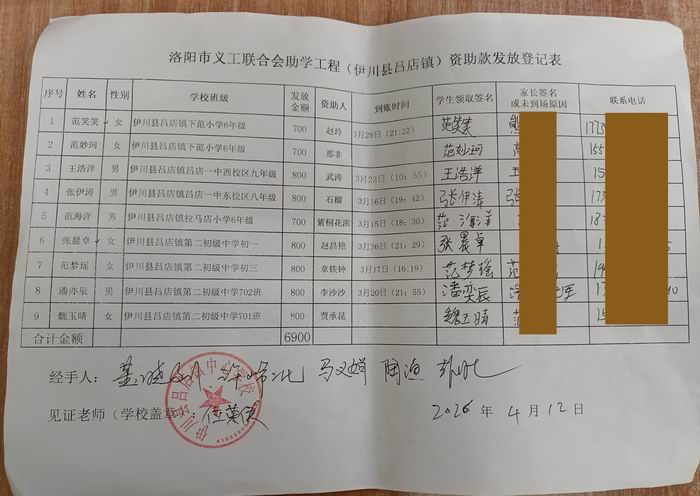 洛阳市义工联合会助学工程（伊川县吕店镇）资助款发放登记表
序号 姓名 性别 学校班级 发放金额 资助人 到账时间 学生领取签名 家长签名或未到场原因 联系电话
1 范笑笑 女 伊川县吕店镇下范小学6年级 700 赵玲 3月28日（21:22） 范笑笑 177
2 范妙珂 女 伊川县吕店镇下范小学6年级 700 那非 范妙珂 155
3 王浩洋 男 伊川县吕店镇吕店一中西校区九年级 800 武涛 3月23日（10：55） 王浩洋 15
4 张伊涛 男 伊川县吕店镇吕店一中东校区八年级 800 石榴 3月16日（19；42） 张伊涛 张 173
5 范海洋 男 伊川县吕店镇拉马店小学6年级 700 紫桐花浓 3月15日（18；30） 范海洋 18
6 张晨卓 女 伊川县吕店镇第二初级中学初一 800 赵昌艳 3月26日（21:29） 张晨卓 1
7 范梦瑶 女 伊川县吕店镇第二初级中学初三 800 章铁钟 3月17日（16:19） 范梦瑶 范 19
8 潘亦辰 男 伊川县吕店镇第二初级中学702班 800 李沙沙 3月20日（21：55） 潘奕辰 1
9 魏玉晴 女 伊川县吕店镇第二初级中学701班 800 贾承昆 魏玉晴 范 15
合计金额 6900
经手人： 马义娟 陶渔
见证老师（学校盖章）：
2026 年 4 月 12 日
伊川县吕店镇中心学校